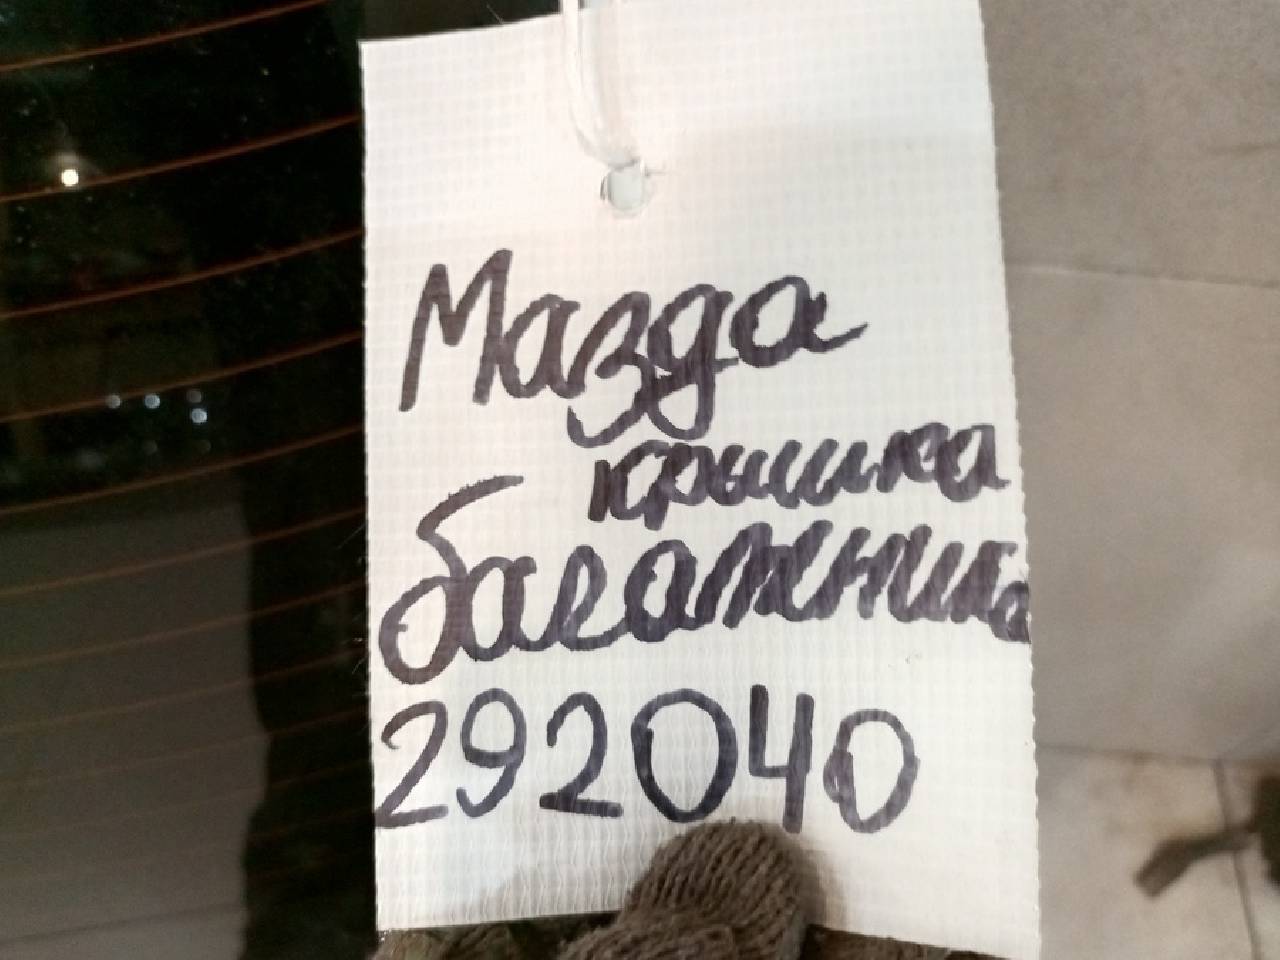 Мазда
крышка
багажника
292040